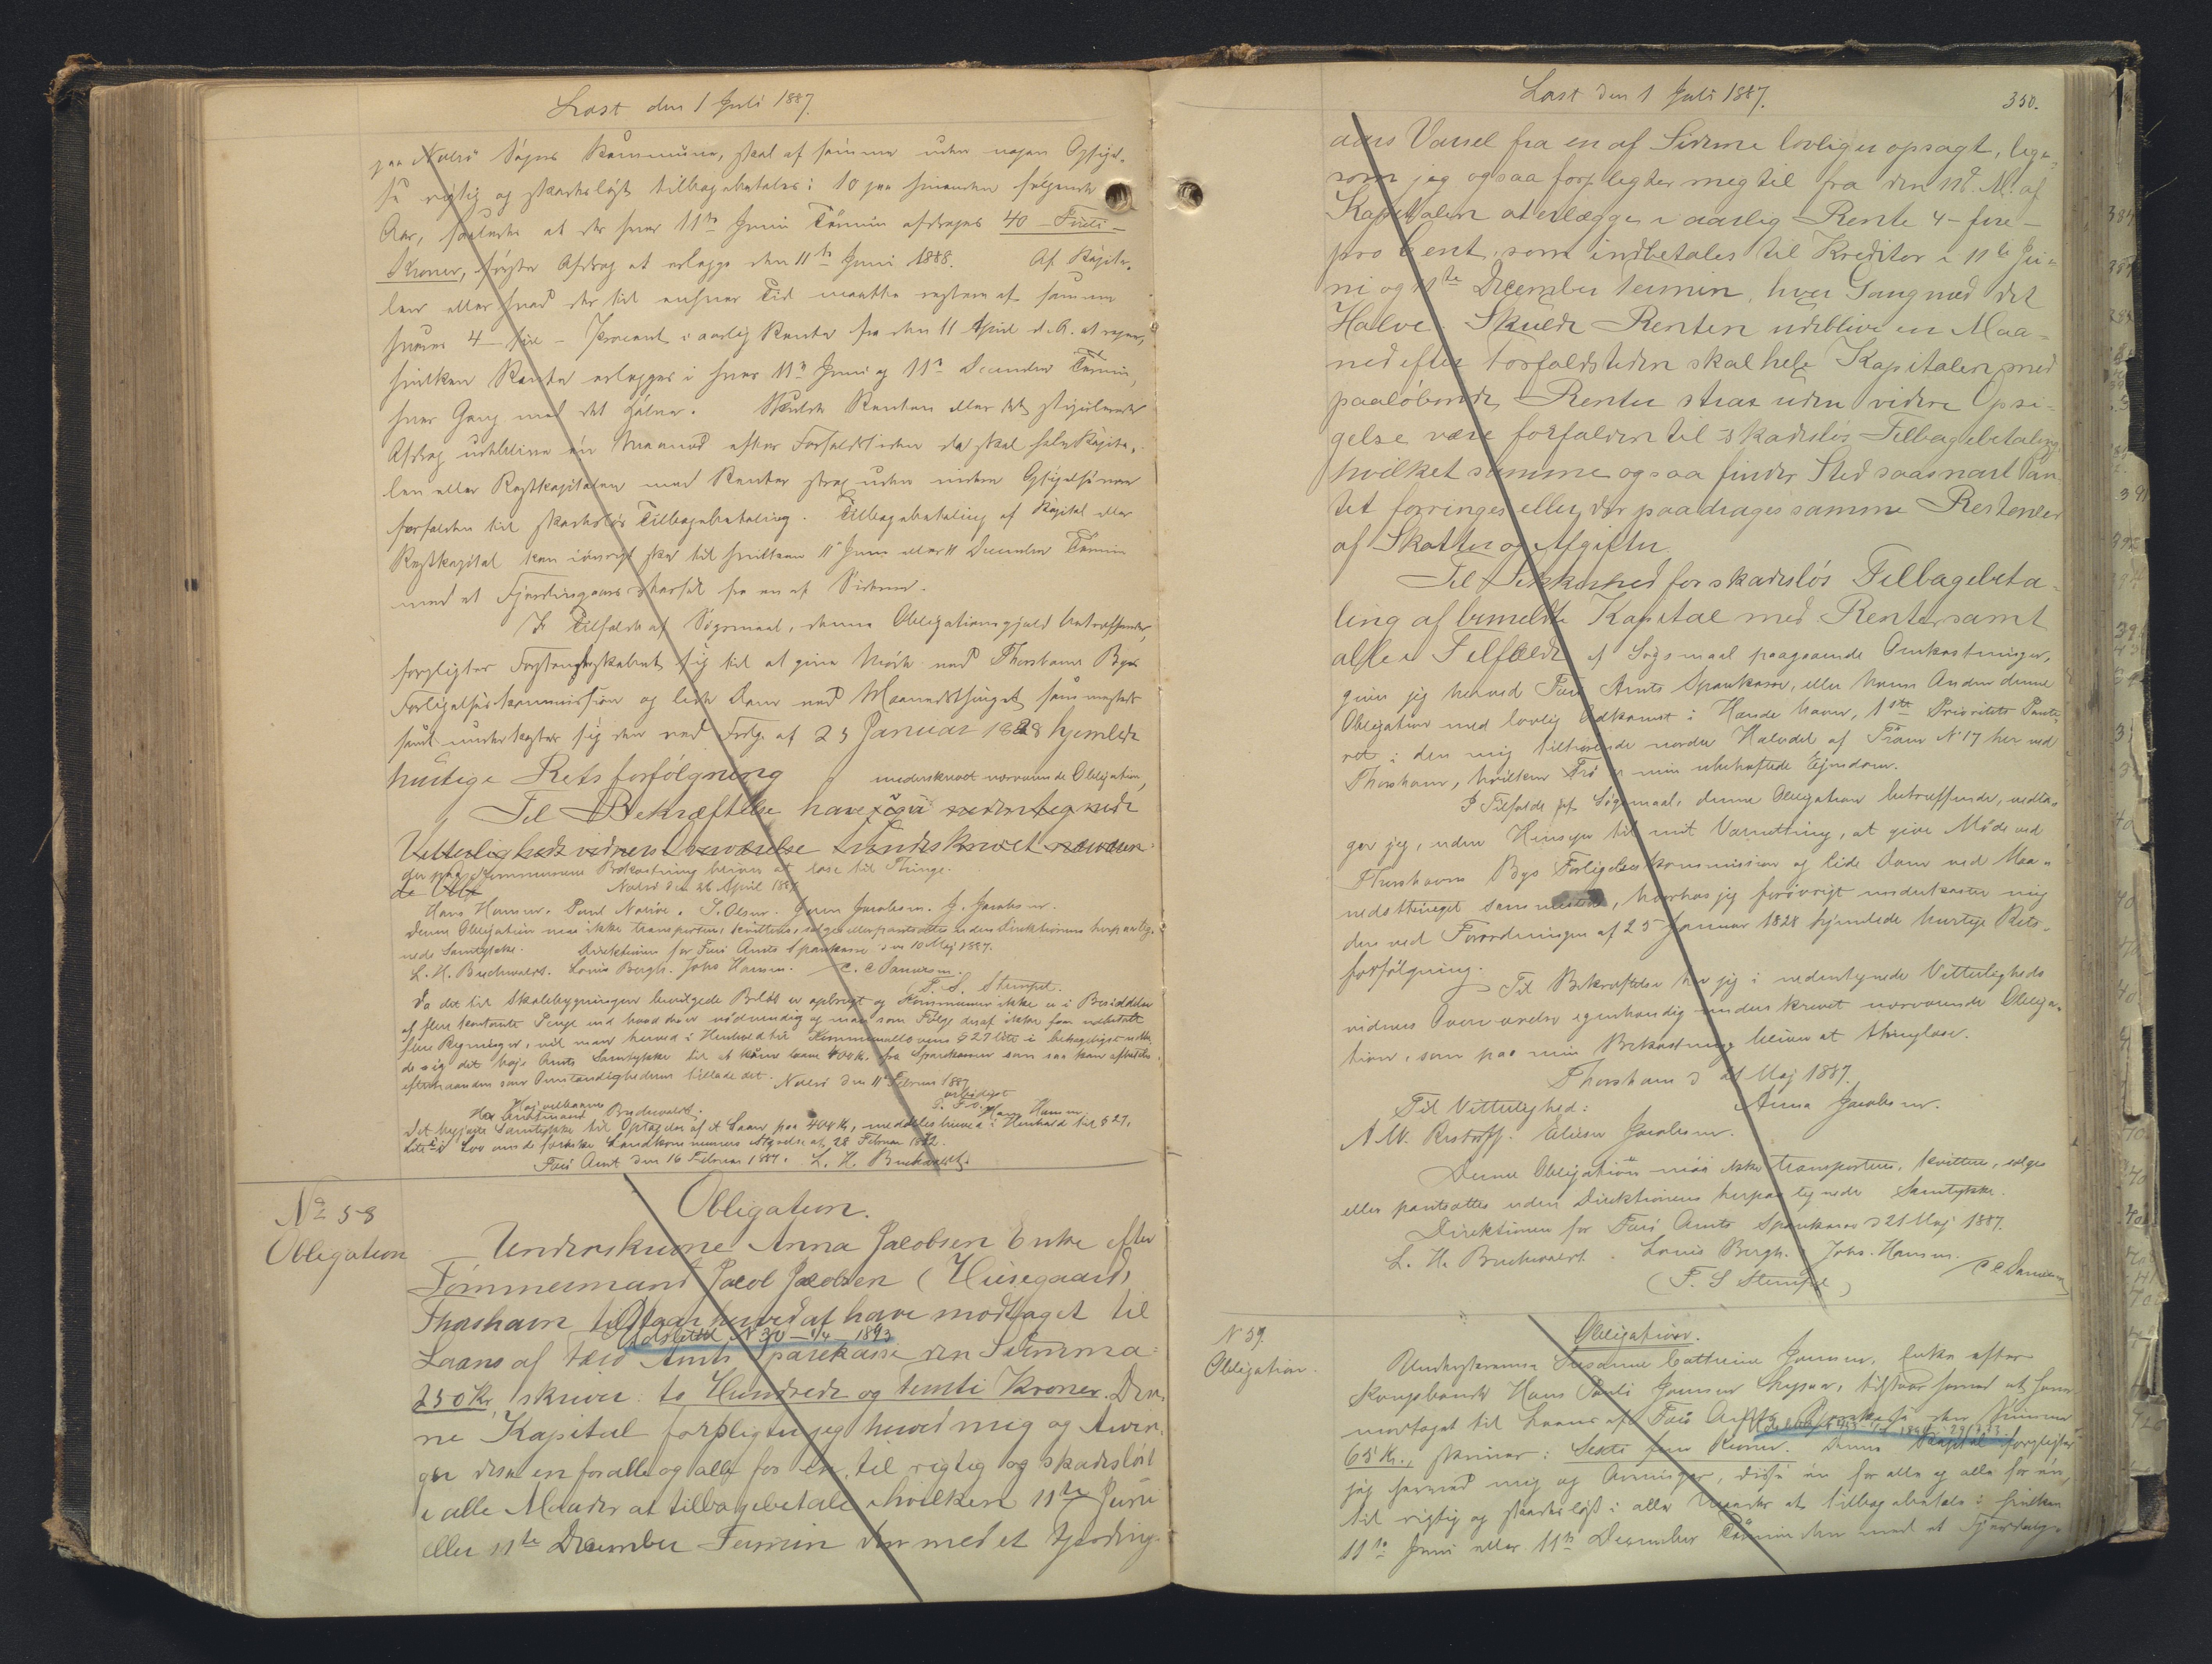 Læst den 1 Juli 1887.
paa Nolsö Sogns Kommune, skal af samme uden nogen Opsigel-
se rigtig og skadesløst tilbagebetales i 10 paa hinanden følgende
Aar, saaledes at der hver 11te Juni Termin afdrages 40 - Firti -
Kroner, første Afdrag at erlægge den 11te Juni 1888. Af Kapita-
len eller hvad der til enhver Tid maatte restere af samme
svares 4 - fire - Procent i aarlig Rente fra den 11 April d.A. at regne,
hvilken Rente erlægges i hver 11te Juni og 11te December Termin,
hver Gang med det Halve. Skulde Renten eller det stipulerede
Afdrag udeblive én Maaned efter Forfaldstiden da skal hele Kapita-
len eller Restkapitalen med Renter strax uden videre Opsigelse være
forfalden til skadesløs Tilbagebetaling. Tilbagebetaling af Kapital eller
Restkapital kan iøvrigt ske til hvilken 11te Juni eller 11 December Termin
med et Fjerdingaars Varsel fra en af Siderne.
I Tilfælde af Søgsmaal, denne Obligationsgjæld betræffende,
forpligter Forstanderskabet sig til at give Møde ved Thorshavns Byes
Forligelseskommission og lide Dom ved Maanedsthinget sammesteds
samt underkaster sig den ved Frdg. af 25 Januar 1828 hjemlede
hurtige Retsforfølgning
Til Bekræftelse have vi underskrevet nærværende Obligation,
Vitterlighedsvidners Overværelse underskrevet nærværen-
de Obl
der paa Kommunens Bekostning bliver at læse til Thinge.
Nolsö den 26 April 1887
Hans Hansen. Poul Nolsöe. S. Olsen. Jacobsen. J. Jacobsen.
Denne Obligation maa ikke transporteres, kvitteres, sælges eller pantsættes uden Direktionens herpaa teg-
nede Samtykke. Direktionen for Færö Amts Sparekasse den 10 Maj 1887.
L. H. Buchwaldt. Louis Bergh. Johs Hansen. C. C Danielsen.
(F. S. Stempel.
Da det til Skolebygningen bevilgede Beløb er opbrugt og Kommunen ikke er i Besiddelse
af flere kontante Penge end hvad den er nødvendig og man som Følge deraf ikke kan udbetale
flere Regninger, vil man herved i Henhold til Kommunallovens § 27 litr c behageligst udbe-
de sig det høje Amts Samtykke til at kunne laane 400 Kr. fra Sparekassen som saa kan afbetales
efterhaanden som Omstændighederne tillade det. Nolsö den 11 Februar 1887
ærbødigst
P. F. V.
Hans Hansen
Højvelbaarne
Hr. Amtmand Buchwaldt.
Det begjærte Samtykke til Optagelse af et Laan paa 400 Kr, meddeles herved i Henhold til § 27,
Litr c i Lov om de færøske Landkommuners Styrelse af 28 Februar 1872.
Færö Amt den 16 Februar 1887. L. H. Buchwaldt.
No 58
Obligation
Obligation.
Underskrevne Anna Jacobsen Enke efter
Tömmermand Jacob Jacobsen (Husegaard)
Thorshavn tilstaar herved at have modtaget til
Udslettet N 30 - 4/4 1893
Laans af Færö Amts Sparekasse den Summa:
250 Kr, skriver to Hundrede og femti Kroner. Den-
ne Kapital forpligter jeg herved mig og Arvin-
ger disse en for alle og alle for en, til rigtig og skadesløst
i alle Maader at tilbagebetale i hvilken 11te Juni
eller 11te December Termin den med et Fjerding-
Læst den 1 Juli 1887.
350.
aars Varsel fra en af Siderne lovlig er opsagt, lige-
som jeg ogsaa forpligter mig til fra den 11 d. M. af
Kapitalen at erlægge i aarlig Rente 4 - fire -
pro Cent, som indbetales til Kreditor i 11te Ju-
ni og 11te December Termin, hver Gang med det
Halve. Skulde Renten udeblive en Maa-
ned efter Forfaldstiden skal hele Kapitalen med
paaløbende Renter strax uden videre Opsi-
gelse være forfalden til skadesløs Tilbagebetaling,
hvilket samme ogsaa finder Sted saasnart Pan-
tet forringes eller der paadrages samme Restancer
af Skatter og Afgifter.
Til Sikkerhed for skadesløs Tilbagebeta-
ling af bemeldte Kapital med Renter samt
alle i Tilfælde af Søgsmaal paagaaende Omkostninger,
giver jeg herved Færö Amts Sparekasse, eller hvem Anden denne
Obligation med lovlig Adkomst i Hænde haver, 1ste Prioritets Pante-
ret i den mig tilhørende nordre Halvdel af Træen N 17 her ved
Thorshavn, hvilken Trö er min ubehæftede Ejendom.
I Tilfælde af Søgsmaal, denne Obligation betræffende, vedta-
ger jeg, uden Hensyn til mit Værnething, at give Møde ved
Thorshavns Byes Forligelseskommission og lide Dom ved Maa-
nedsthinget sammesteds, hvorhos jeg forøvrigt underkaster mig
den ved Forordningen af 25 Januar 1828 hjemlede hurtige Rets-
forfølgning.
Til Bekræftelse har jeg i nedentegnede Vitterligheds
vidners Overværelse egenhændig underskrevet nærværende Obliga-
tion, som paa min Bekostning bliver at thinglæse.
Thorshavn d 21 Maj 1887.
Til Vitterlighed: Anna Jacobsen.
A. W. Restorff. Eliesar Jacobsen.
Denne Obligation maa ikke transporteres, kvitteres, sælges
eller pantsættes uden Direktionens herpaa tegnede Samtykke.
Direktionen for Færö Amts Sparekasse d 21 Maj 1887.
L. H. Buchwaldt. Louis Bergh. Johs. Hansen.
C C Danielsen
(F. S Stempel)
N 59.
Obligation.
Obligation.
Underskrevne Susanne Cathrine Jensen, Enke efter
Kongsbonde Hans Pauli Jensen, tilstaar herved at have
modtaget til Laans af Færö Amts Sparekasse den Summa
65 Kr., skriver: Sexti fem Kroner. Denne Kapital forpligter
jeg herved mig og Arvinger, disse én for alle og alle for én,
til rigtig og skadesløst i alle Maader at tilbagebetale i hvilken
11te Juni eller 11te December Termin den med et Fjerding-